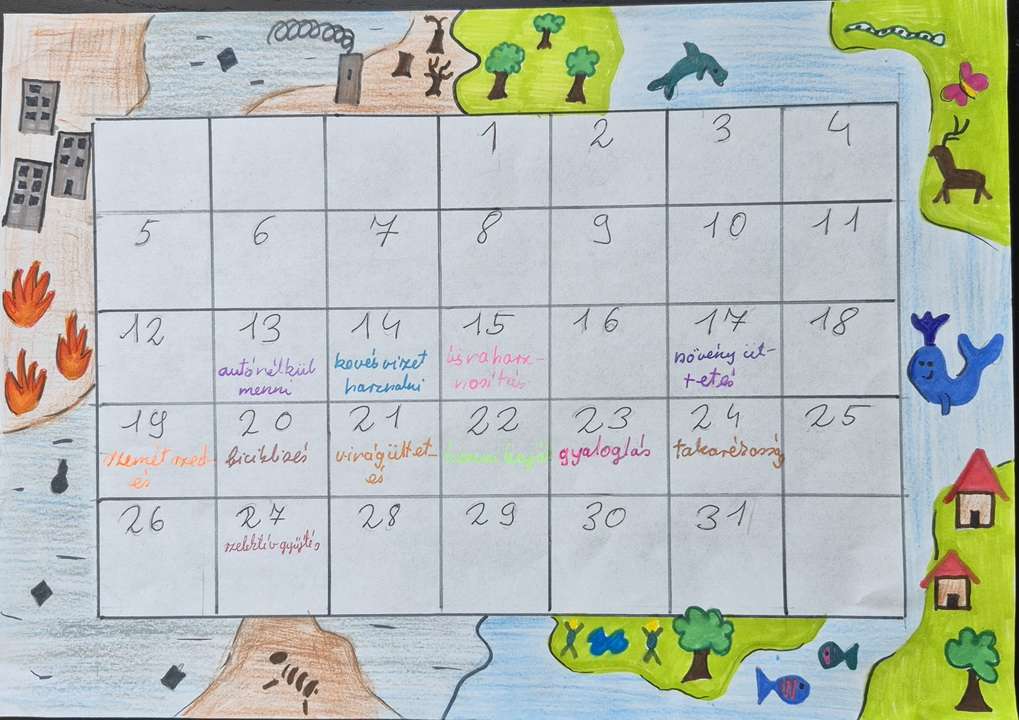 1 2 3 4
5 6 7 8 9 10 11
12 13 14 15 16 17 18
autónélkül kevés vizet újrahasz- növény ül-
menni használni nosítás tetés
19 20 21 22 23 24 25
szemét szed- biciklizés virágültet- gyaloglás takarékosság
és és
26 27 28 29 30 31
szelektív gyűjtés